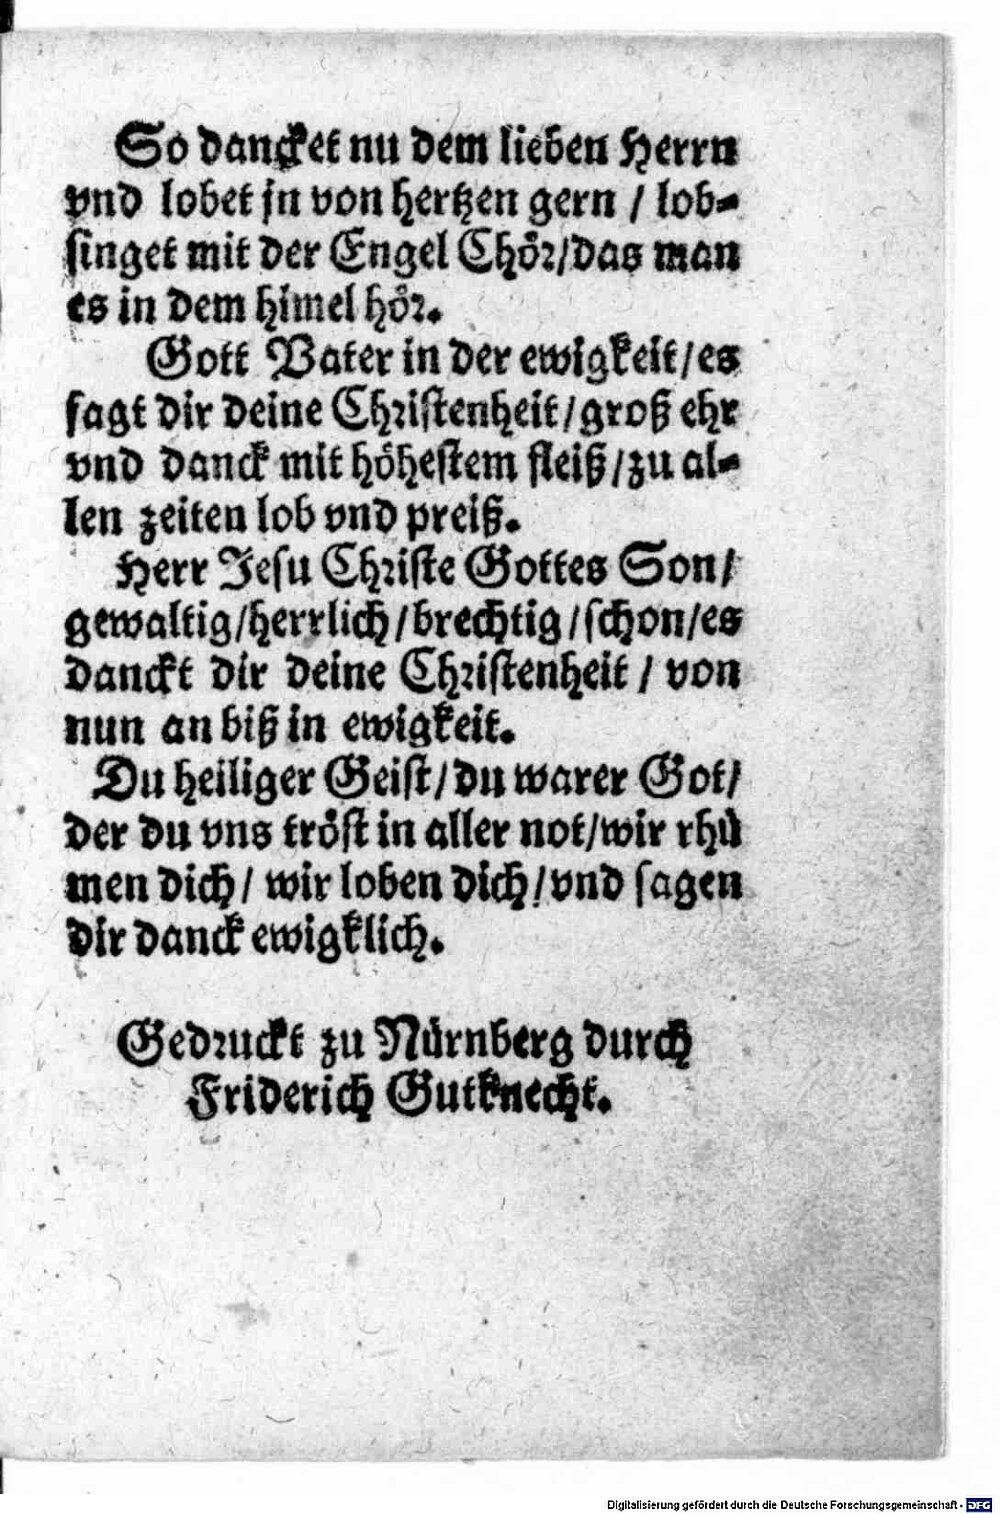 So dancket nu dem lieben Herrn
vnd lobet jn von hertzen gern / lob-
singet mit der Engel Chör/das man
es in dem himel hör.
Gott Vater in der ewigkeit/es
sagt dir deine Christenheit/groß ehr
vnd danck mit höhestem fleiß/zu al-
len zeiten lob vnd preiß.
Herr Jesu Christe Gottes Son/
gewaltig/herrlich/brechtig/schon/es
danckt dir deine Christenheit / von
nun an biß in ewigkeit.
Du heiliger Geist/du warer Got/
der du vns tröst in aller not/wir rhů
men dich/ wir loben dich/vnd sagen
dir danck ewigklich.
Gedruckt zu Nürnberg durch
Friderich Gutknecht.
Digitalisierung gefördert durch die Deutsche Forschungsgemeinschaft - DFG